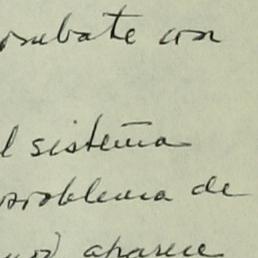 combate con
el sistema
problema de
aparece